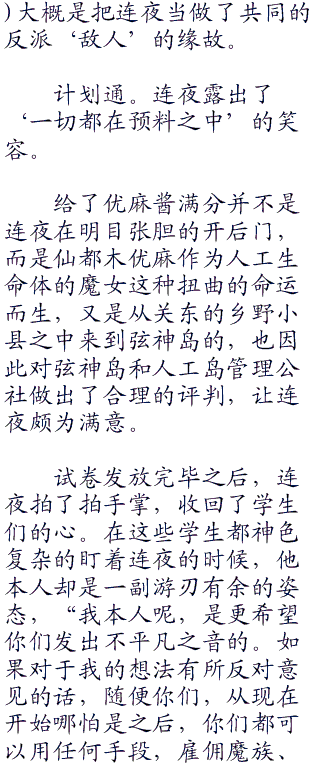 )大概是把连夜当做了共同的
反派‘敌人’的缘故。
计划通。连夜露出了
‘一切都在预料之中’的笑
容。
给了优麻酱满分并不是
连夜在明目张胆的开后门，
而是仙都木优麻作为人工生
命体的魔女这种扭曲的命运
而生，又是从关东的乡野小
县之中来到弦神岛的，也因
此对弦神岛和人工岛管理公
社做出了合理的评判，让连
夜颇为满意。
试卷发放完毕之后，连
夜拍了拍手掌，收回了学生
们的心。在这些学生都神色
复杂的盯着连夜的时候，他
本人却是一副游刃有余的姿
态，“我本人呢，是更希望
你们发出不平凡之音的。如
果对于我的想法有所反对意
见的话，随便你们，从现在
开始哪怕是之后，你们都可
以用任何手段，雇佣魔族、